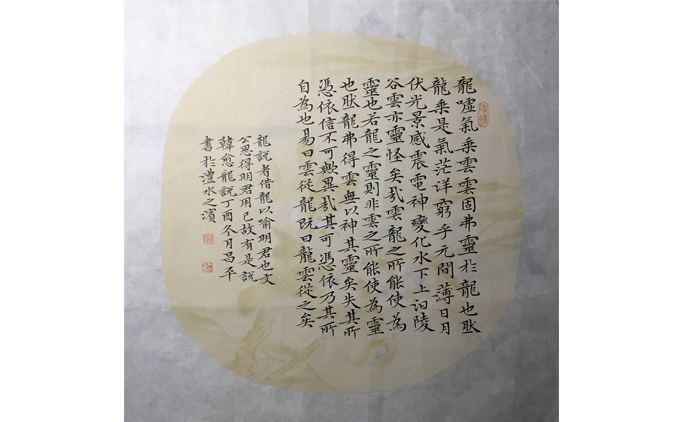 龍噓氣乘雲雲固弗靈於龍也然
龍乘是氣茫洋窮乎元間薄日月
伏光景感震電神變化水下上汩陵
谷雲亦靈怪矣哉雲龍之所能使為
靈也若龍之靈則非雲之所能使為靈
也然龍弗得雲無以神其靈矣失其所
憑依信不可歟異哉其可憑依乃其所
自為也易曰雲從龍既曰龍雲從之矣
龍說者借龍以喻明君也文
公思得明君用己故有是說
韓愈龍說丁酉冬月昌平
書於澧水之濱